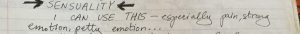 → SENSUALITY ←
I CAN USE THIS - especially pain, strong
emotion, petty emotion...